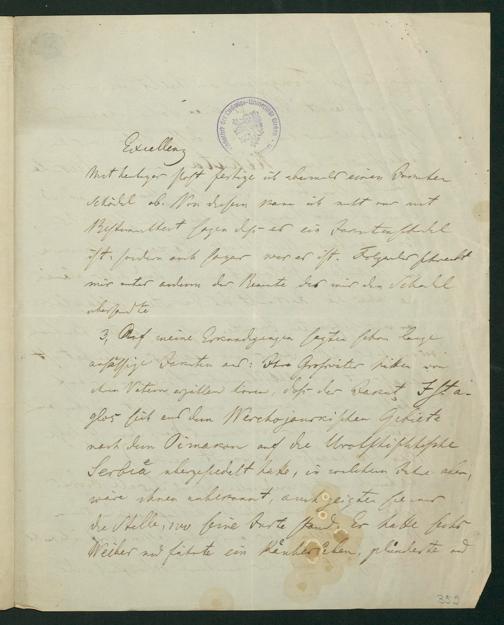 Excellenz
Mit heutiger Post fertige ich abermals einen Jakuten
Schädel ab. Von diesem kann ich nicht nur mit
Bestimmtheit sagen daß er ein Jakutenschädel
ist, sondern auch sogar wer er ist. Folgendes schreibt
mir unter anderen der Beamte der mir den Schädel
übersandte
3, Auf meine Erkundigungen sagten schon lange
ansässige Jakuten aus: Ihre Großväter haben von
den Vätern erzählen hören, daß der Jakut
sich aus dem Werchojanskischen Gebiete
nach dem Omakon auf die
übergesiedelt habe, in welchem Jahre aber,
wäre ihnen unbekannt, auch zeigten sie mir
die Stelle, wo seine Jurte stand. Er hatte sechs
Weiber und führte ein Räuberleben, plünderte und
399